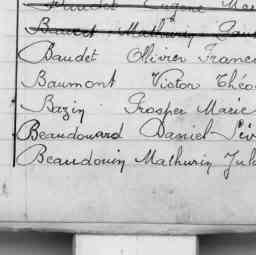 Eugène
Mathurin
Baudet Olivier Franc
Baumont Victor Théo
Bazin Prosper Marie
Beaudouard Daniel
Beaudouin Mathurin Jul